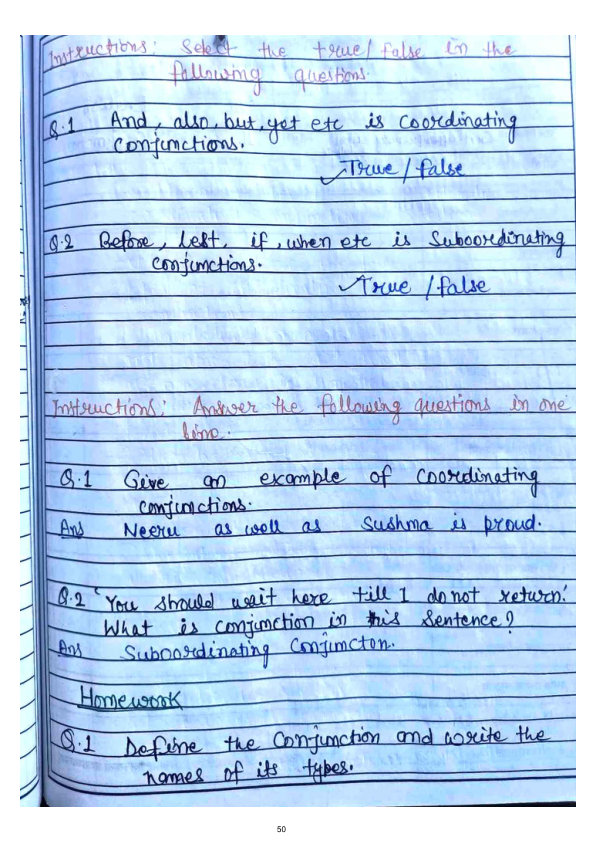 Instructions: Select the true/false in the
following questions.
Q.1 And, also, but, yet etc is coordinating
conjunctions.
✓True / false
Q.2 Before, lest, if, when etc is Suboordinating
conjunctions.
✓True / false
Instructions: Answer the following questions in one
line.
Q.1 Give an example of coordinating
conjunctions.
Ans Neeru as well as Sushma is proud.
Q.2 'You should wait here till I do not return.'
What is conjunction in this Sentence?
Ans Suboordinating Conjimcton.
Homework
Q.1 Define the Conjunction and write the
names of its types.
50